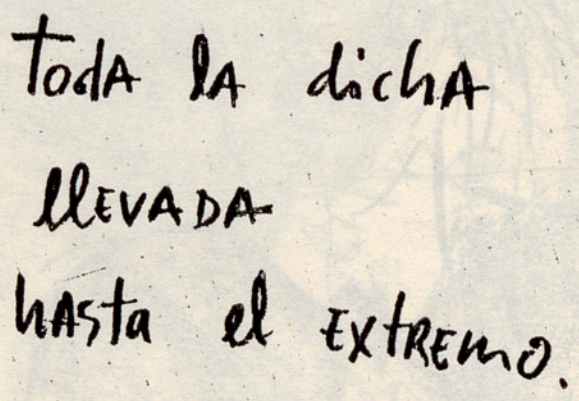 todA lA dichA
llEVADA
hAsta el EXtREmO.